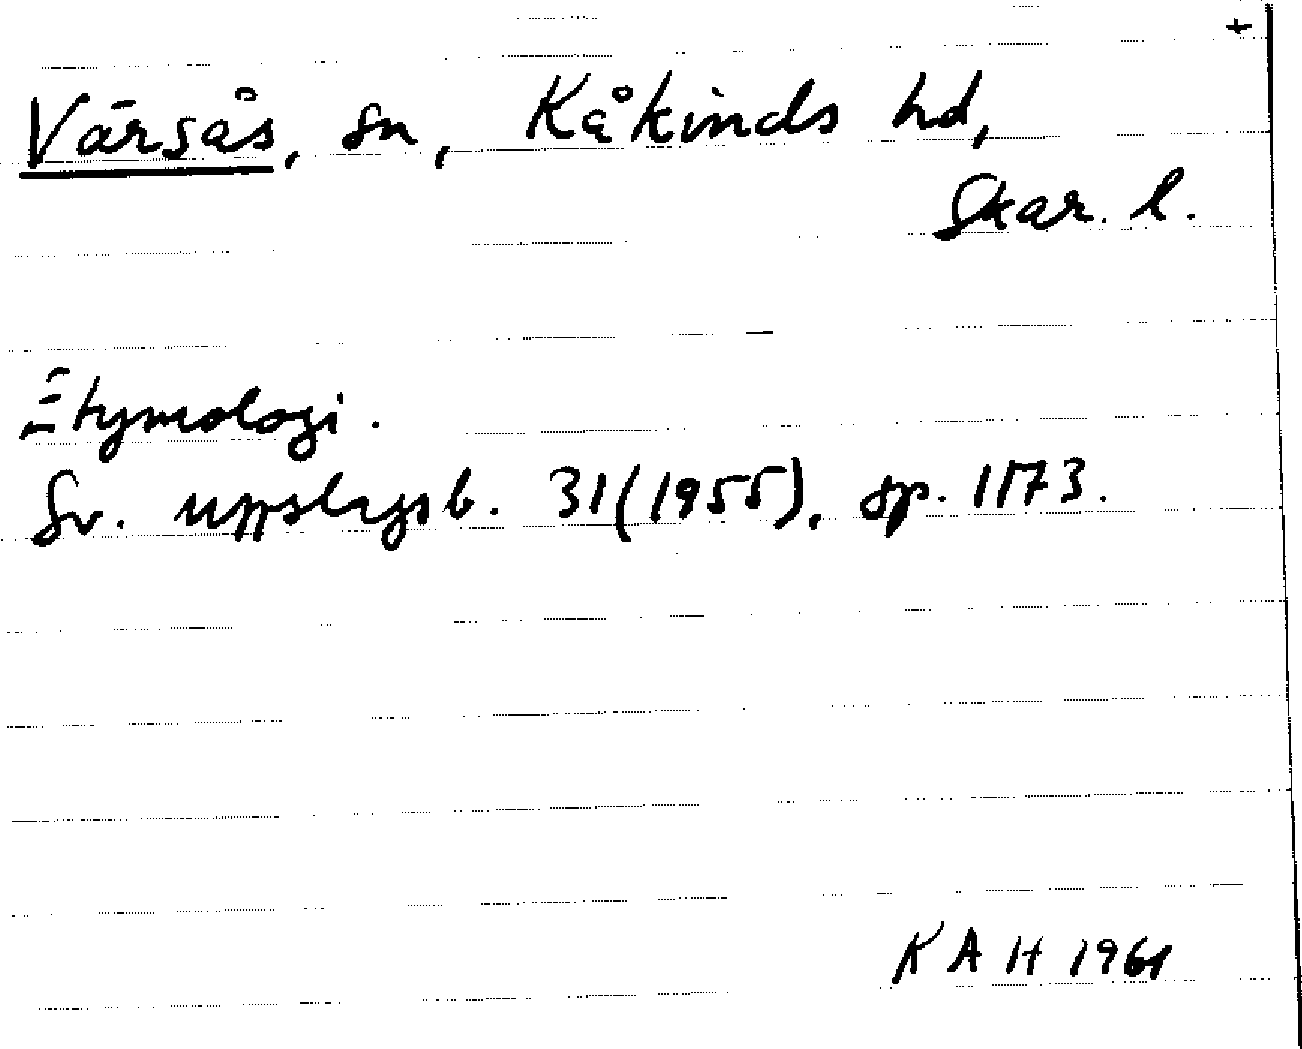 +
Värsås, sn, Kåkinds hd,
Skar. l.
Etymologi.
Sv. uppslagsb. 31(1955), sp. 1173.
KAH 1961